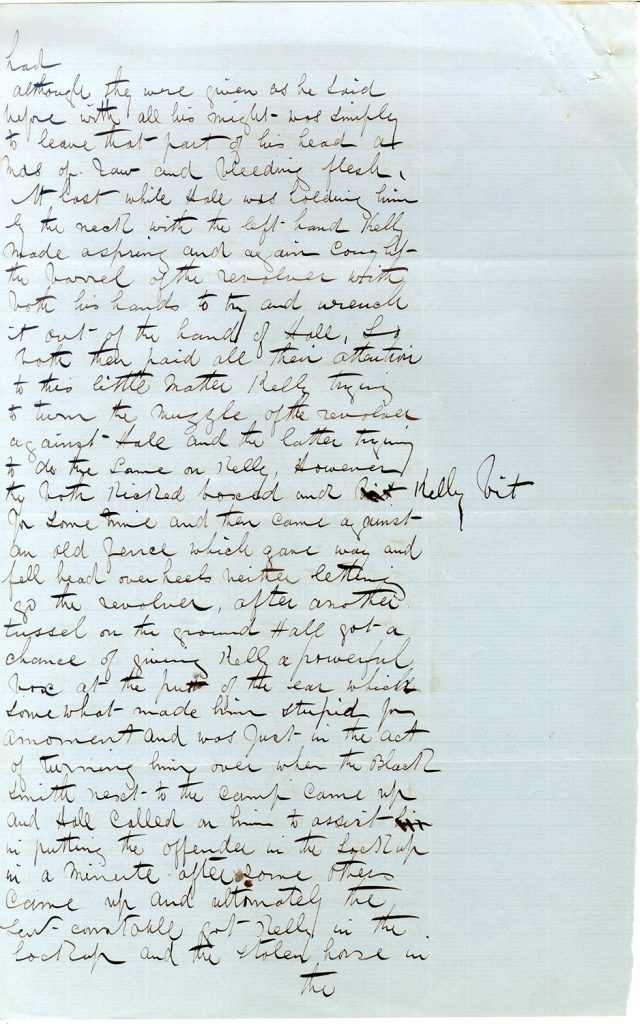 had
although they were given as he said
before with all his might was simply
to leave that part of his head a
mas of raw and bleeding flesh,
At last while Hall was holding him
by the neck with the left hand Kelly
made a spring and again caught
the barrel of the revolver with
both his hands to try and wrench
it out of the hand of Hall, So
both then paid all their attention
to this little matter Kelly trying
to turn the muzzle of the revolver
against Hall and the latter trying
to do the same on Kelly, However
they both kicked boxed and Kelly bit
for some time and then came against
an old fence which gave way and
fell head over heels neither letting
go the revolver, after another
tussel on the ground Hall got a
chance of giving Kelly a powerful
box at the of the ear which
somewhat made him stupid for
a moment and was just in the act
of turning him over when the Black
smith next to the camp came up
and Hall called on him to assist
in putting the offender in the Lockup
in a minute after some others
came up and ultomately the
Sen constable got Kelly in the
Lockup and the stolen horse in
the